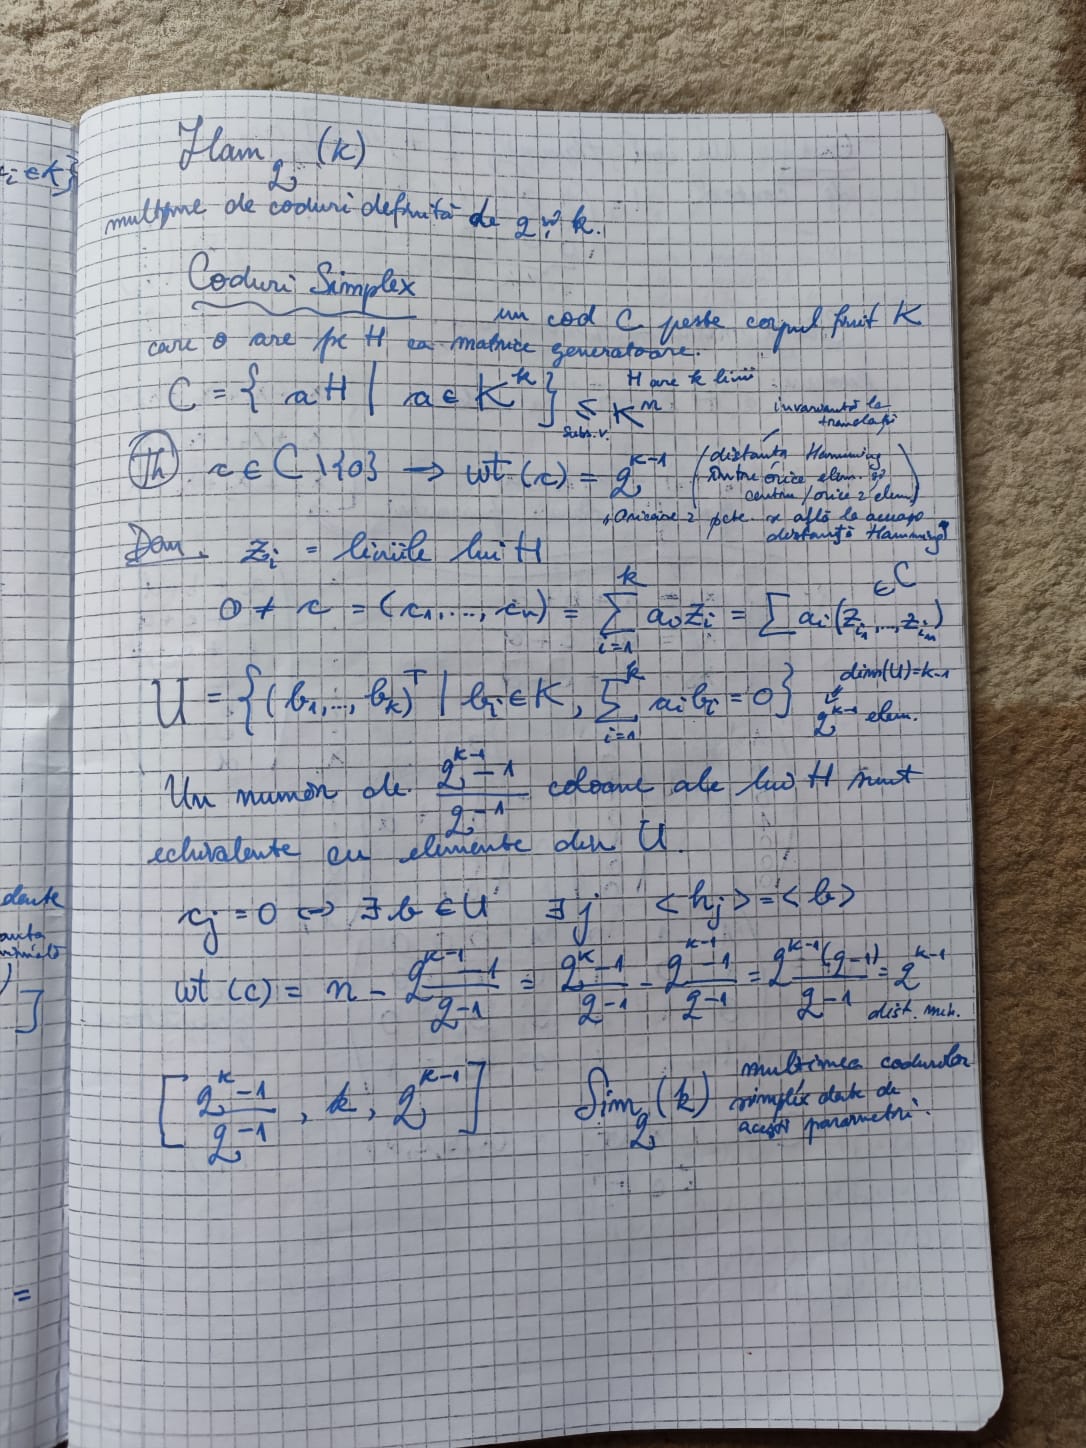 i ∈ K}
Ham_q (k)
mulțime de coduri definită de q și k.
Coduri Simplex
un cod C peste corpul finit K
care o are pe H ca matrice generatoare.
C = { aH | a ∈ K^k } ≤ K^n
subsp. v.
H are k linii
invariantă la
translații
(Th) c ∈ C \ {0} → wt(c) = q^{k-1}
(distanța Hamming
între orice elem. și
centru / orice 2 elem.)
"Oricare 2 pcte. se află la aceeași
distanță Hamming"
Dem. z_i = liniile lui H
0 ≠ c = (c_1, ..., c_n) = Σ_{i=1}^{k} a_i z_i = Σ a_i (z_{i_1}, ..., z_{i_n}) ∈ C
U = {(b_1, ..., b_k)^T | b_i ∈ K, Σ_{i=1}^{k} a_i b_i = 0}
dim(U) = k-1
q^{k-1} elem.
Un număr de (q^{k-1} - 1)/(q-1) coloane ale lui H sunt
echivalente cu elemente din U.
c_j = 0 ⟺ ∃ b ∈ U ∃ j <h_j> = <b>
wt(c) = n - (q^{k-1} - 1)/(q-1) = (q^k - 1)/(q-1) - (q^{k-1} - 1)/(q-1) = q^{k-1}(q-1)/(q-1) = q^{k-1}
dist. min.
[(q^k - 1)/(q-1), k, q^{k-1}]
Sim_q (k)
mulțimea codurilor
simplex date de
acești parametri.
=